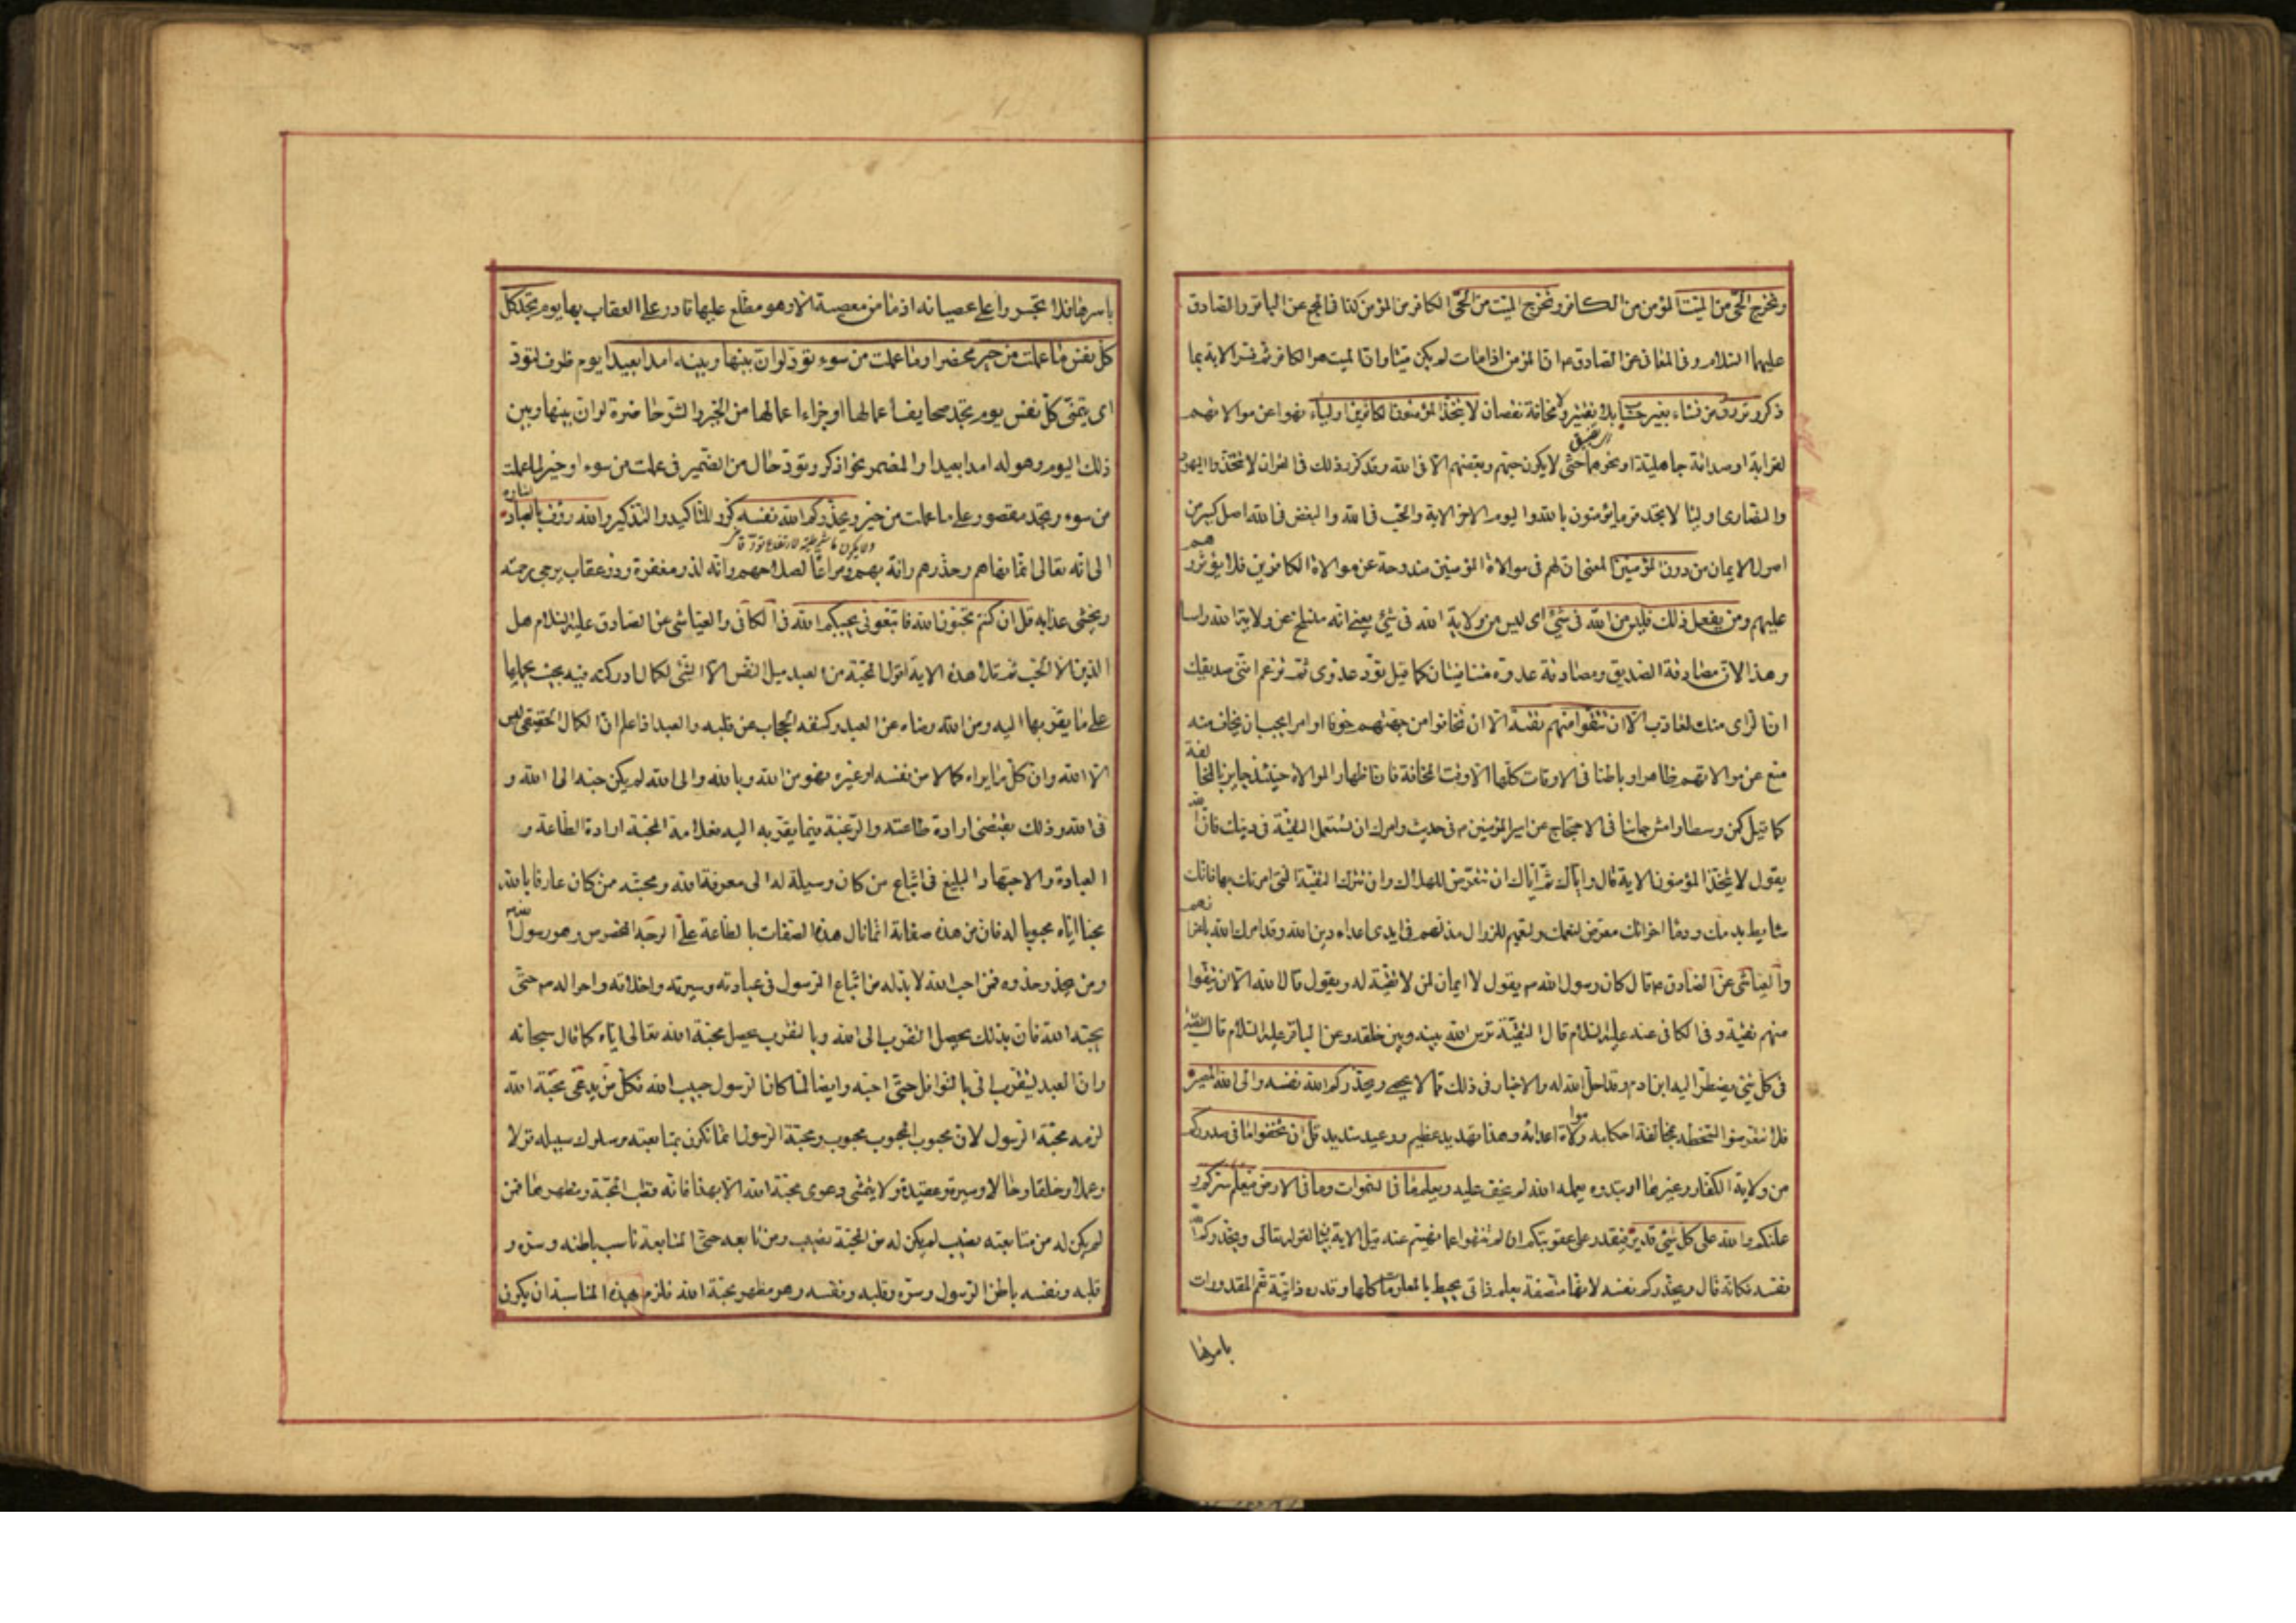 وتخرج الحي من الميت المؤمن من الكافر وتخرج الميت من الحي الكافر من المؤمن كذا في المجمع عن الباقر والصادق
عليهما السلام وفي المعاني عن الصادق ع ان المؤمن اذا مات لم يكن ميتا وان الميت هو الكافر ثم فسر الاية بما
ذكر وترزق من تشاء بغير حساب بلا تقتير ولا مخافة نقصان لا يتخذ المؤمنون الكافرين اولياء نهوا عن موالاتهم
لقرابة او صداقة جاهلية او نحوهما حتى لا يكون حبهم وبغضهم الا في الله وقد كرر ذلك في القران لا تتخذوا اليهود
والنصارى اولياء لا تجد قوما يؤمنون بالله واليوم الاخر الاية والحب في الله والبغض في الله اصل كبير من
اصول الايمان من دون المؤمنين المعنى ان لهم في موالاة المؤمنين مندوحة عن موالاة الكافرين فلا يؤثروهم
عليهم ومن يفعل ذلك فليس من الله في شئ اي ليس من ولاية الله في شئ يعني انه منسلخ عن ولاية الله راسا
وهذا لان مصادقة الصديق ومصادقة عدوه متنافيتان كما قيل تود عدوي ثم تزعم انني صديقك
ان الراى منك لعازب الا ان تتقوا منهم تقية الا ان تخافوا من جهتهم خوفا او امرا يجب ان يخاف منه
منع عن موالاتهم ظاهرا وباطنا في الاوقات كلها الا وقت المخافة فان اظهار الموالاة حينئذ جايز بالمخالفة
كما قيل كن وسطا وامش جانبا في الاحتجاج عن امير المؤمنين م في حديث وامرك ان تستعمل التقية في دينك فان الله
يقول لا يتخذ المؤمنون الاية قال واياك ثم اياك ان تتعرض للهلاك وان تترك التقية التي امرتك بها فانك
شايط بدمك ودماء اخوانك معرض لنعمك ونعمهم للزوال مذلهم في ايدى اعداء دين الله وقد امرك الله باعزازهم
والعياشي عن الصادق م قال كان رسول الله ص يقول لا ايمان لمن لا تقية له ويقول قال الله الا ان تتقوا
منهم تقية وفي الكافي عنه عليه السلام قال التقية ترس الله بينه وبين خلقه وعن الباقر عليه السلام قال التقية
في كل شئ يضطر اليه ابن ادم وقد احل الله له والاخبار في ذلك مما لا يحصى ويحذركم الله نفسه والى الله المصير
فلا تتعرضوا لسخطه بمخالفة احكامه وموالاة اعدائه وهذا تهديد عظيم ووعيد شديد قل ان تخفوا ما في صدوركم
من ولاية الكفار وغيرها او تبدوه يعلمه الله لم يخف عليه ويعلم ما في السموات وما في الارض فيعلم سركم و
علنكم والله على كل شئ قدير فيقدر على عقوبتكم ان لم تنتهوا عما نهيتم عنه قيل الاية بيان لقوله تعالى ويحذركم الله
نفسه فكانه قال ويحذركم نفسه لانها متصفة بعلم ذاتي يحيط بالمعلومات كلها وقدرة ذاتية تعم المقدورات
باسرها
باسرها فلا تجسروا على عصيانه اذ ما من معصية الا وهو مطلع عليها قادر على العقاب بها يوم تجد كل
كل نفس ما عملت من خير محضرا وما عملت من سوء تود لو ان بينها وبينه امدا بعيدا يوم ظرف لتود
اى يتمنى كل نفس يوم تجد صحايف اعمالها او جزاء اعمالها من الخير والشر حاضرة لو ان بينها وبين
ذلك اليوم وهوله امدا بعيدا والمضمر نحو اذكر وتود حال من الضمير في عملت من سوء او خبر لما عملت
من سوء وتجد مقصور على ما عملت من خير ويحذركم الله نفسه كرر للتاكيد والتذكير والله رؤف بالعباد اشارة
ولا يكون ما شرطية لارتفاع تود
الى انه تعالى انما نهاهم وحذرهم رافة بهم ومراعاة لصلاحهم وانه لذو مغفرة وذو عقاب يرجى رحمته
ويخشى عذابه قل ان كنتم تحبون الله فاتبعوني يحببكم الله في الكافي والعياشي عن الصادق عليه السلام هل
الدين الا الحب ثم تلا هذه الاية اقول المحبة من العبد ميل النفس الى الشئ لكمال ادركته فيه بحيث يحملها
على ما يقربها اليه ومن الله رضاه عن العبد وكشفه الحجاب عن قلبه والعبد اذا علم ان الكمال الحقيقي ليس
الا لله وان كل ما يراه كمالا من نفسه او غيره فهو من الله وبالله والى الله لم يكن حبه الا لله و
في الله وذلك يقتضي ارادة طاعته والرغبة فيما يقربه اليه فعلامة المحبة ارادة الطاعة و
العبادة والاجتهاد البليغ في اتباع من كان وسيلة له الى معرفة الله ومحبته ممن كان عارفا بالله
محبا اياه محبوبا له فان من هذه صفاته انما نال هذه الصفات بالطاعة على الوجه المخصوص وهو رسول الله
ومن يحذو حذوه فمن احب الله لا بد له من اتباع الرسول في عبادته وسيرته واخلاقه واحواله حتى
يحبه الله فان بذلك يحصل التقرب الى الله وبالتقرب يحصل محبة الله تعالى اياه كما قال سبحانه
وان العبد ليتقرب الي بالنوافل حتى احبه وايضا لما كان الرسول حبيب الله فكل من يدعي محبة الله
لزمه محبة الرسول لان محبوب المحبوب محبوب ومحبة الرسول انما تكون بمتابعته وسلوك سبيله قولا
وعملا وخلقا وحالا وسيرة وعقيدة ولا يتمشى دعوى محبة الله الا بهذا فانه قطب المحبة ومظهرها فمن
لم يكن له من متابعته نصيب لم يكن له من المحبة نصيب ومن تابعه حق المتابعة ناسب باطنه وسره و
قلبه ونفسه باطن الرسول وسره وقلبه ونفسه وهو مظهر محبة الله فلزم بهذه المناسبة ان يكون